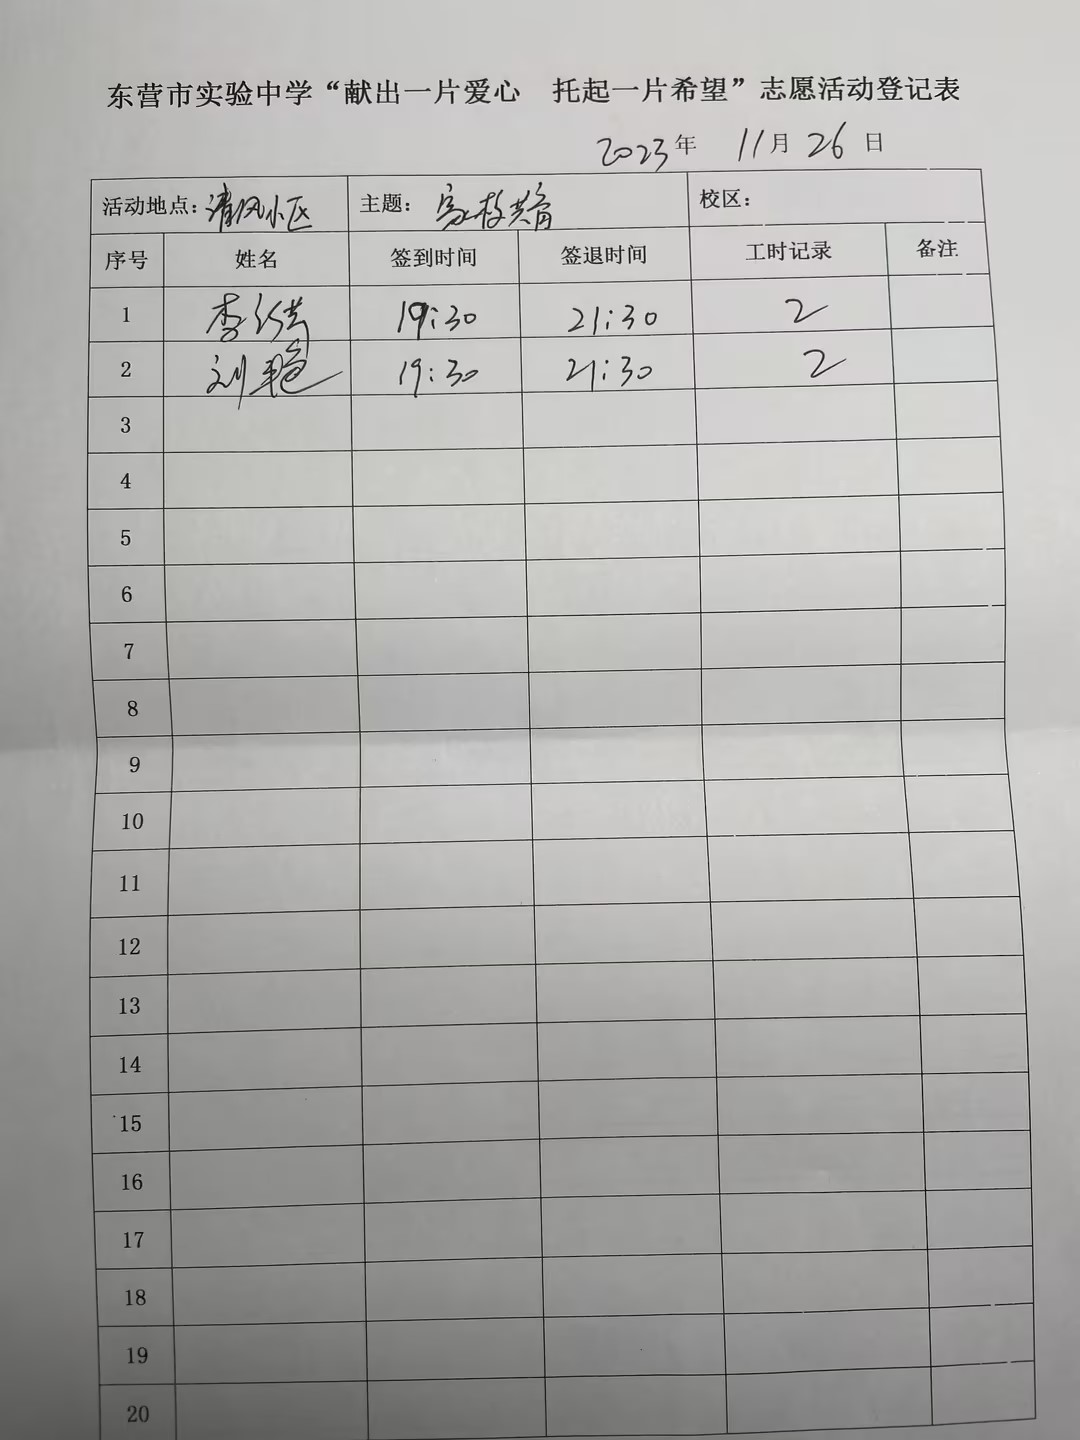 东营市实验中学“献出一片爱心 托起一片希望”志愿活动登记表
2023年 11月26日
活动地点：清风小区 主题：家校共育 校区：
序号 姓名 签到时间 签退时间 工时记录 备注
1 李 19:30 21:30 2
2 刘艳 19:30 21:30 2
3
4
5
6
7
8
9
10
11
12
13
14
15
16
17
18
19
20